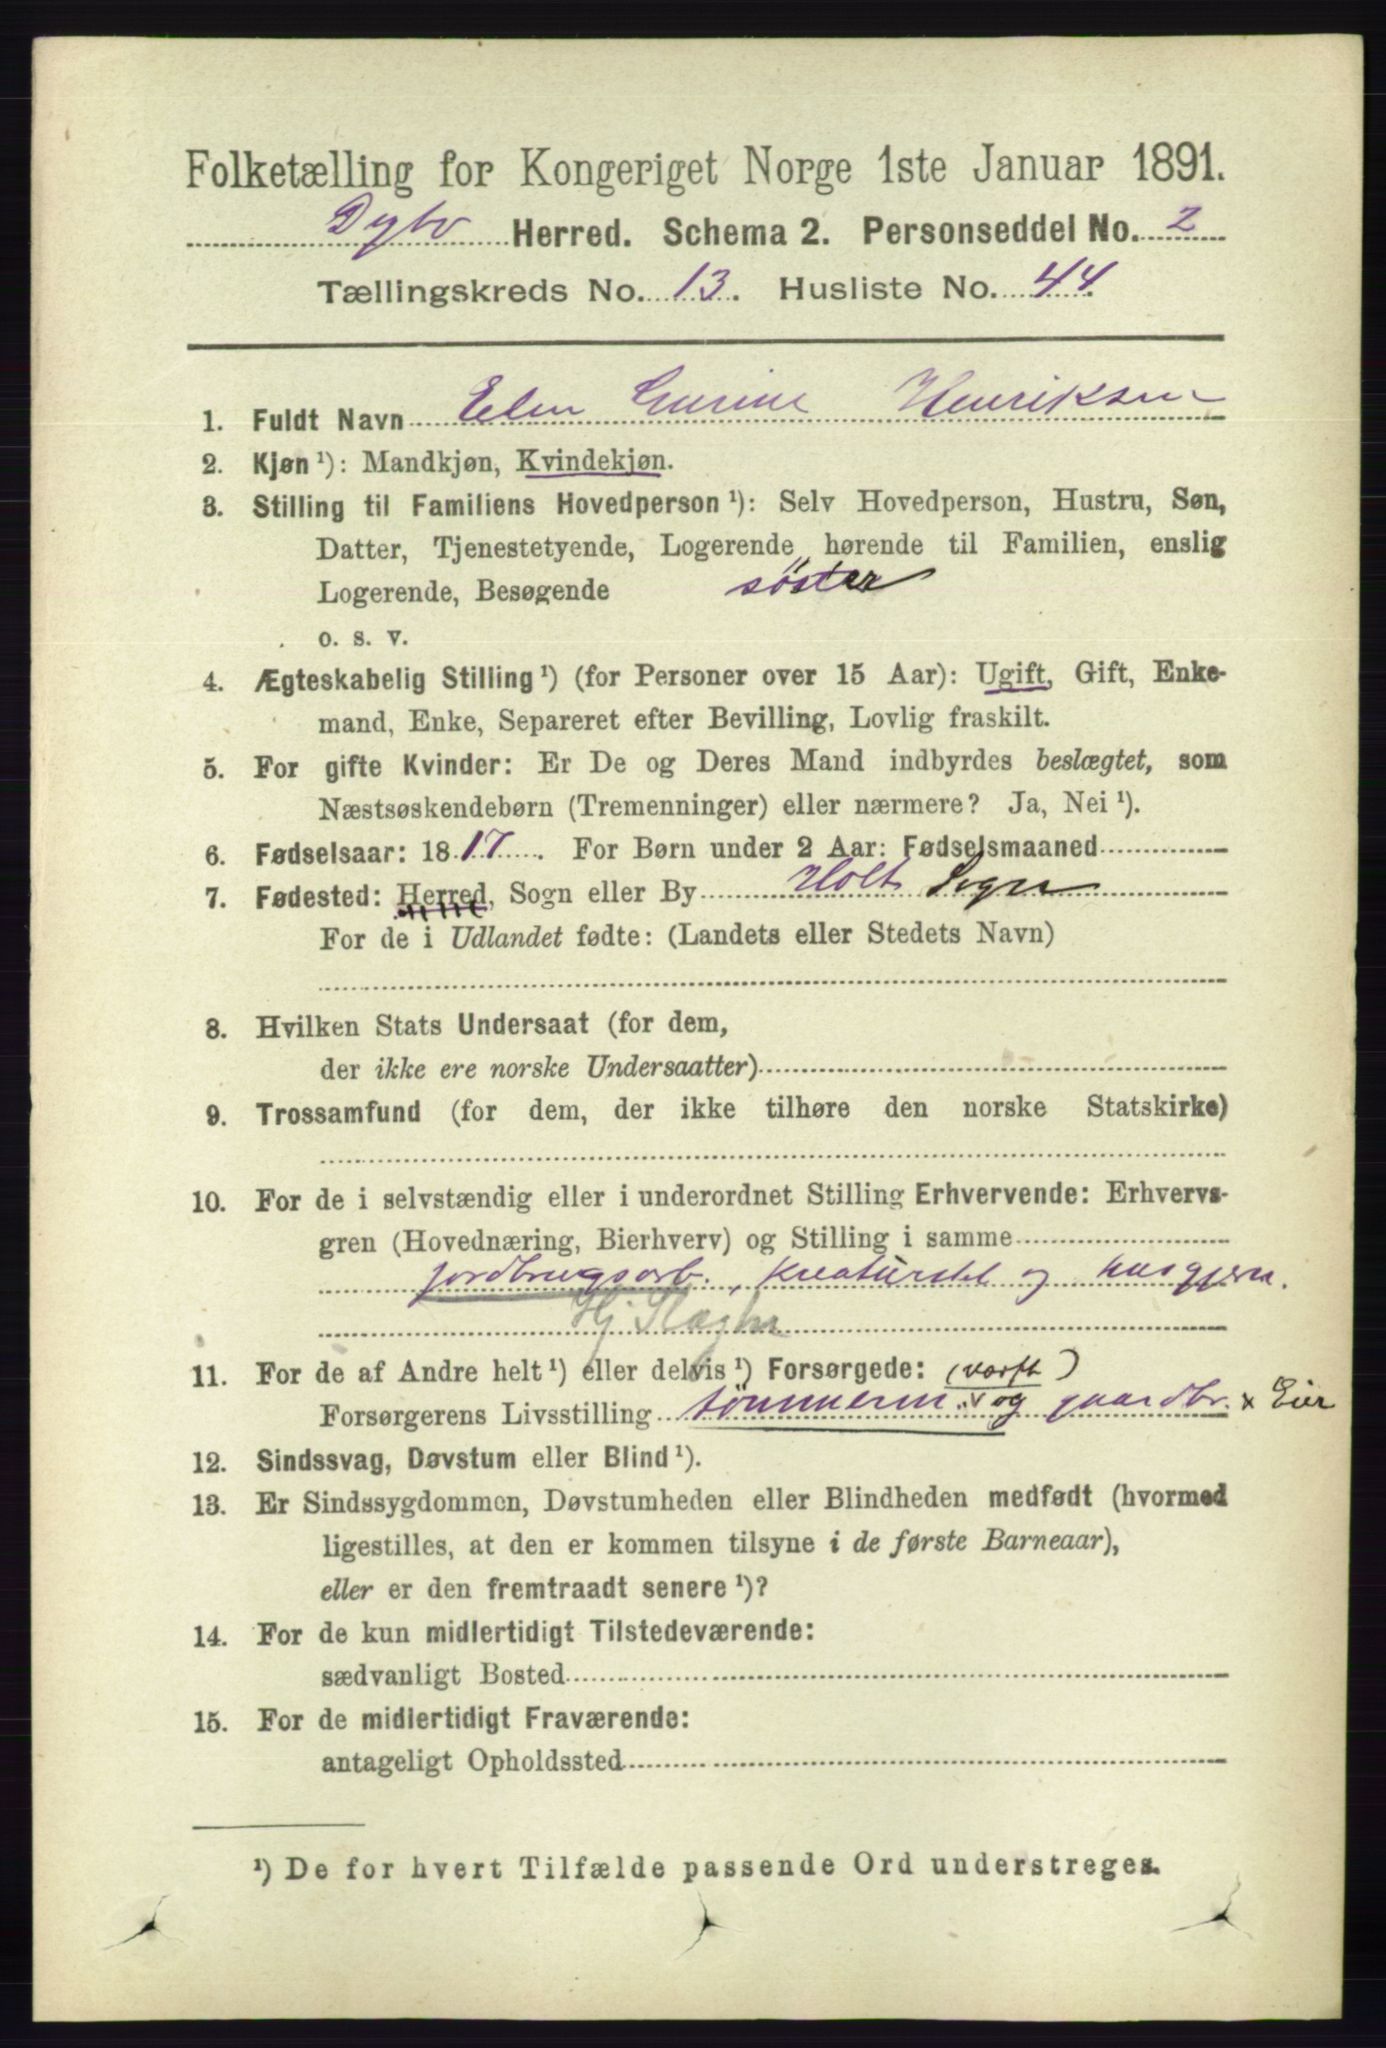 Folketælling for Kongeriget Norge 1ste Januar 1891.
Dybv Herred. Schema 2. Personseddel No. 2
Tællingskreds No. 13. Husliste No. 44.
1. Fuldt Navn Elen Gurine Henriksen
2. Kjøn ¹): Mandkjøn, Kvindekjøn.
3. Stilling til Familiens Hovedperson ¹): Selv Hovedperson, Hustru, Søn,
Datter, Tjenestetyende, Logerende hørende til Familien, enslig
Logerende, Besøgende söster
o. s. v.
4. Ægteskabelig Stilling ¹) (for Personer over 15 Aar): Ugift, Gift, Enke-
mand, Enke, Separeret efter Bevilling, Lovlig fraskilt.
5. For gifte Kvinder: Er De og Deres Mand indbyrdes beslægtet, som
Næstsøskendebørn (Tremenninger) eller nærmere? Ja, Nei ¹).
6. Fødselsaar: 1817. For Børn under 2 Aar: Fødselsmaaned
7. Fødested: Herred, Sogn eller By Holt Sogn
For de i Udlandet fødte: (Landets eller Stedets Navn)
8. Hvilken Stats Undersaat (for dem,
der ikke ere norske Undersaatter)
9. Trossamfund (for dem, der ikke tilhøre den norske Statskirke)
10. For de i selvstændig eller i underordnet Stilling Erhvervende: Erhvervs-
gren (Hovednæring, Bierhverv) og Stilling i samme
jordbrugsarb., kreaturstel og husgjern.
Hj
11. For de af Andre helt ¹) eller delvis ¹) Forsørgede: (værft)
Forsørgerens Livsstilling tömmerm. og gaardbr. x Eier
12. Sindssvag, Døvstum eller Blind ¹).
13. Er Sindssygdommen, Døvstumheden eller Blindheden medfødt (hvormed
ligestilles, at den er kommen tilsyne i de første Barneaar),
eller er den fremtraadt senere ¹)?
14. For de kun midlertidigt Tilstedeværende:
sædvanligt Bosted
15. For de midlertidigt Fraværende:
antageligt Opholdssted
¹) De for hvert Tilfælde passende Ord understreges.